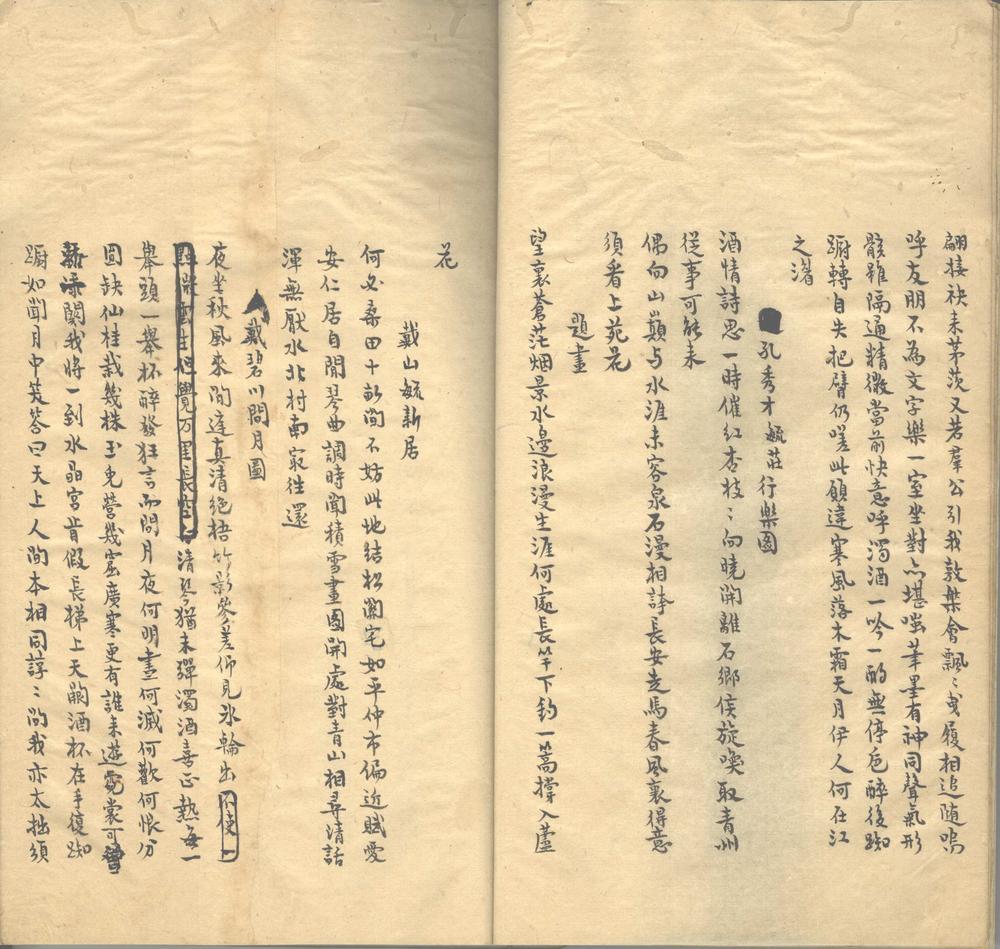 翩接袂来茅茨又若羣公引我敦槃會飄〻曳履相追随嗚
呼友朋不為文字樂一室坐對亦堪嗤筆墨有神同聲氣形
骸雖隔通精微當前快意呼濁酒一吟一酌無停卮醉後踟
蹰轉自失把臂仍嗟此願違寒風落木霜天月伊人何在江
之湄
孔秀才毓莊行樂圖
酒情詩思一時催紅杏枝〻向曉開離石鄉侯旋喚取青州
從事可能来
偶向山巔与水涯未容泉石漫相誇長安走馬春風裏得意
須看上苑花
題畫
望裏蒼茫烟景水邊浪漫生涯何處長竿下釣一篙撑入蘆
花
戴山毓新居
何必桑田十畝間不妨此地結松關宅如平仲市偏近賦愛
安仁居自閒琴曲調時聞積雪畫圖開處對青山相尋清話
渾無厭水北村南家往還
戴碧川問月圖
夜坐秋風來閒達真清絕梧竹影參差仰見氷輪出不使一
點微雲生但覺万里長空上清琴猶未彈濁酒喜正熱每一
舉頭一舉杯醉發狂言而問月夜何明晝何滅何歡何恨分
圓缺仙桂栽幾株玉兎營幾窟廣寒更有誰来遊霓裳可曾
闋我將一到水晶宮肯假長梯上天闕酒杯在手復踟
蹰如聞月中笑答曰天上人間本相同諄〻問我亦太拙須